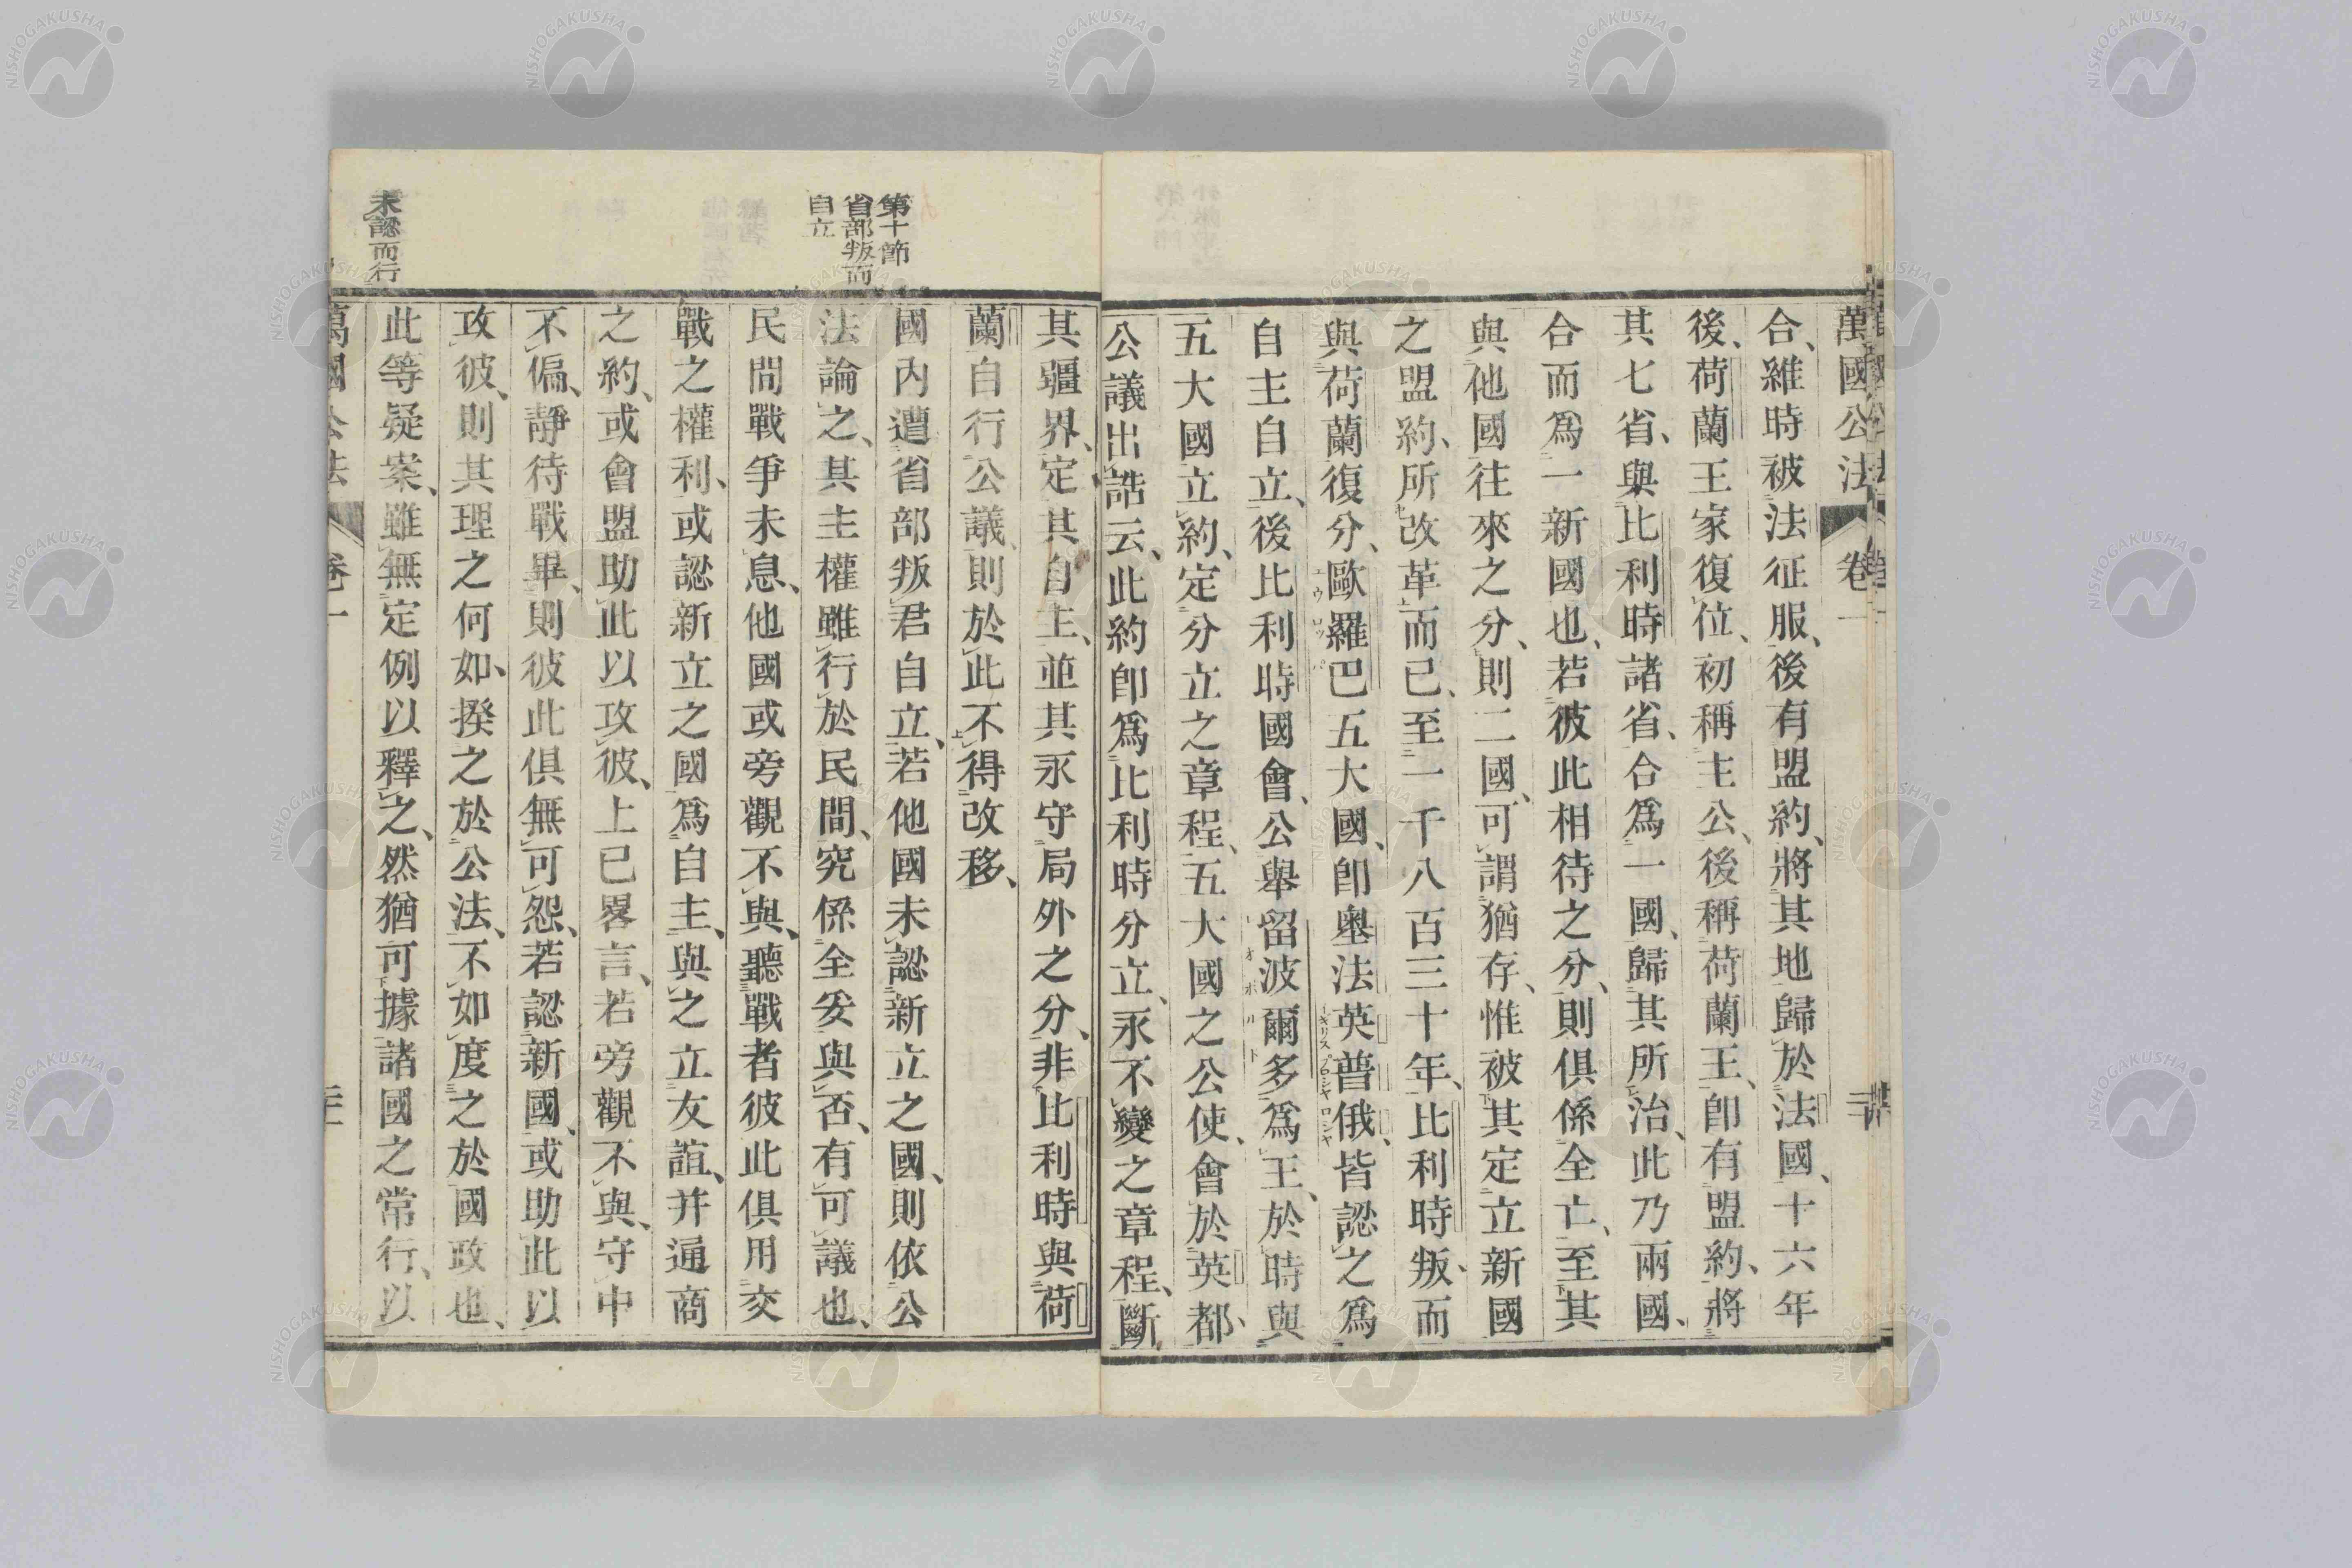 萬國公法 卷一
合、維時被法征服、後有盟約、將其地歸於法國、十六年
後、荷蘭王家復位、初稱主公、後稱荷蘭王、卽有盟約、將
其七省、與比利時諸省、合爲一國、歸其所治、此乃兩國、
合而爲一新國也、若彼此相待之分、則俱係全亡、至其
與他國往來之分、則二國、可謂猶存、惟被其定立新國
之盟約、所改革而已、至一千八百三十年、比利時叛、而
與荷蘭復分、歐羅巴五大國、卽奧法英普俄、皆認之爲
自主自立、後比利時國會、公舉留波爾多爲王、於時與
五大國立約、定分立之章程、五大國之公使、會於英都、
公議出誥云、此約卽爲比利時分立、永不變之章程、斷
其疆界、定其自主、並其永守局外之分、非比利時與荷
蘭自行公議、則於此不得改移、
第十節
省部叛而
自立
國內遭省部叛君自立、若他國未認新立之國、則依公
法論之、其主權雖行於民間、究係全妥與否、有可議也、
民間戰爭未息、他國或旁觀不與、聽戰者彼此俱用交
戰之權利、或認新立之國爲自主、與之立友誼、并通商
之約、或會盟助此以攻彼、上已畧言、若旁觀不與、守中
不偏、靜待戰畢、則彼此俱無可怨、若認新國、或助此以
攻彼、則其理之何如、揆之於公法、不如度之於國政也、
未認而行
此等疑案、雖無定例以釋之、然猶可據諸國之常行、以
萬國公法 卷一